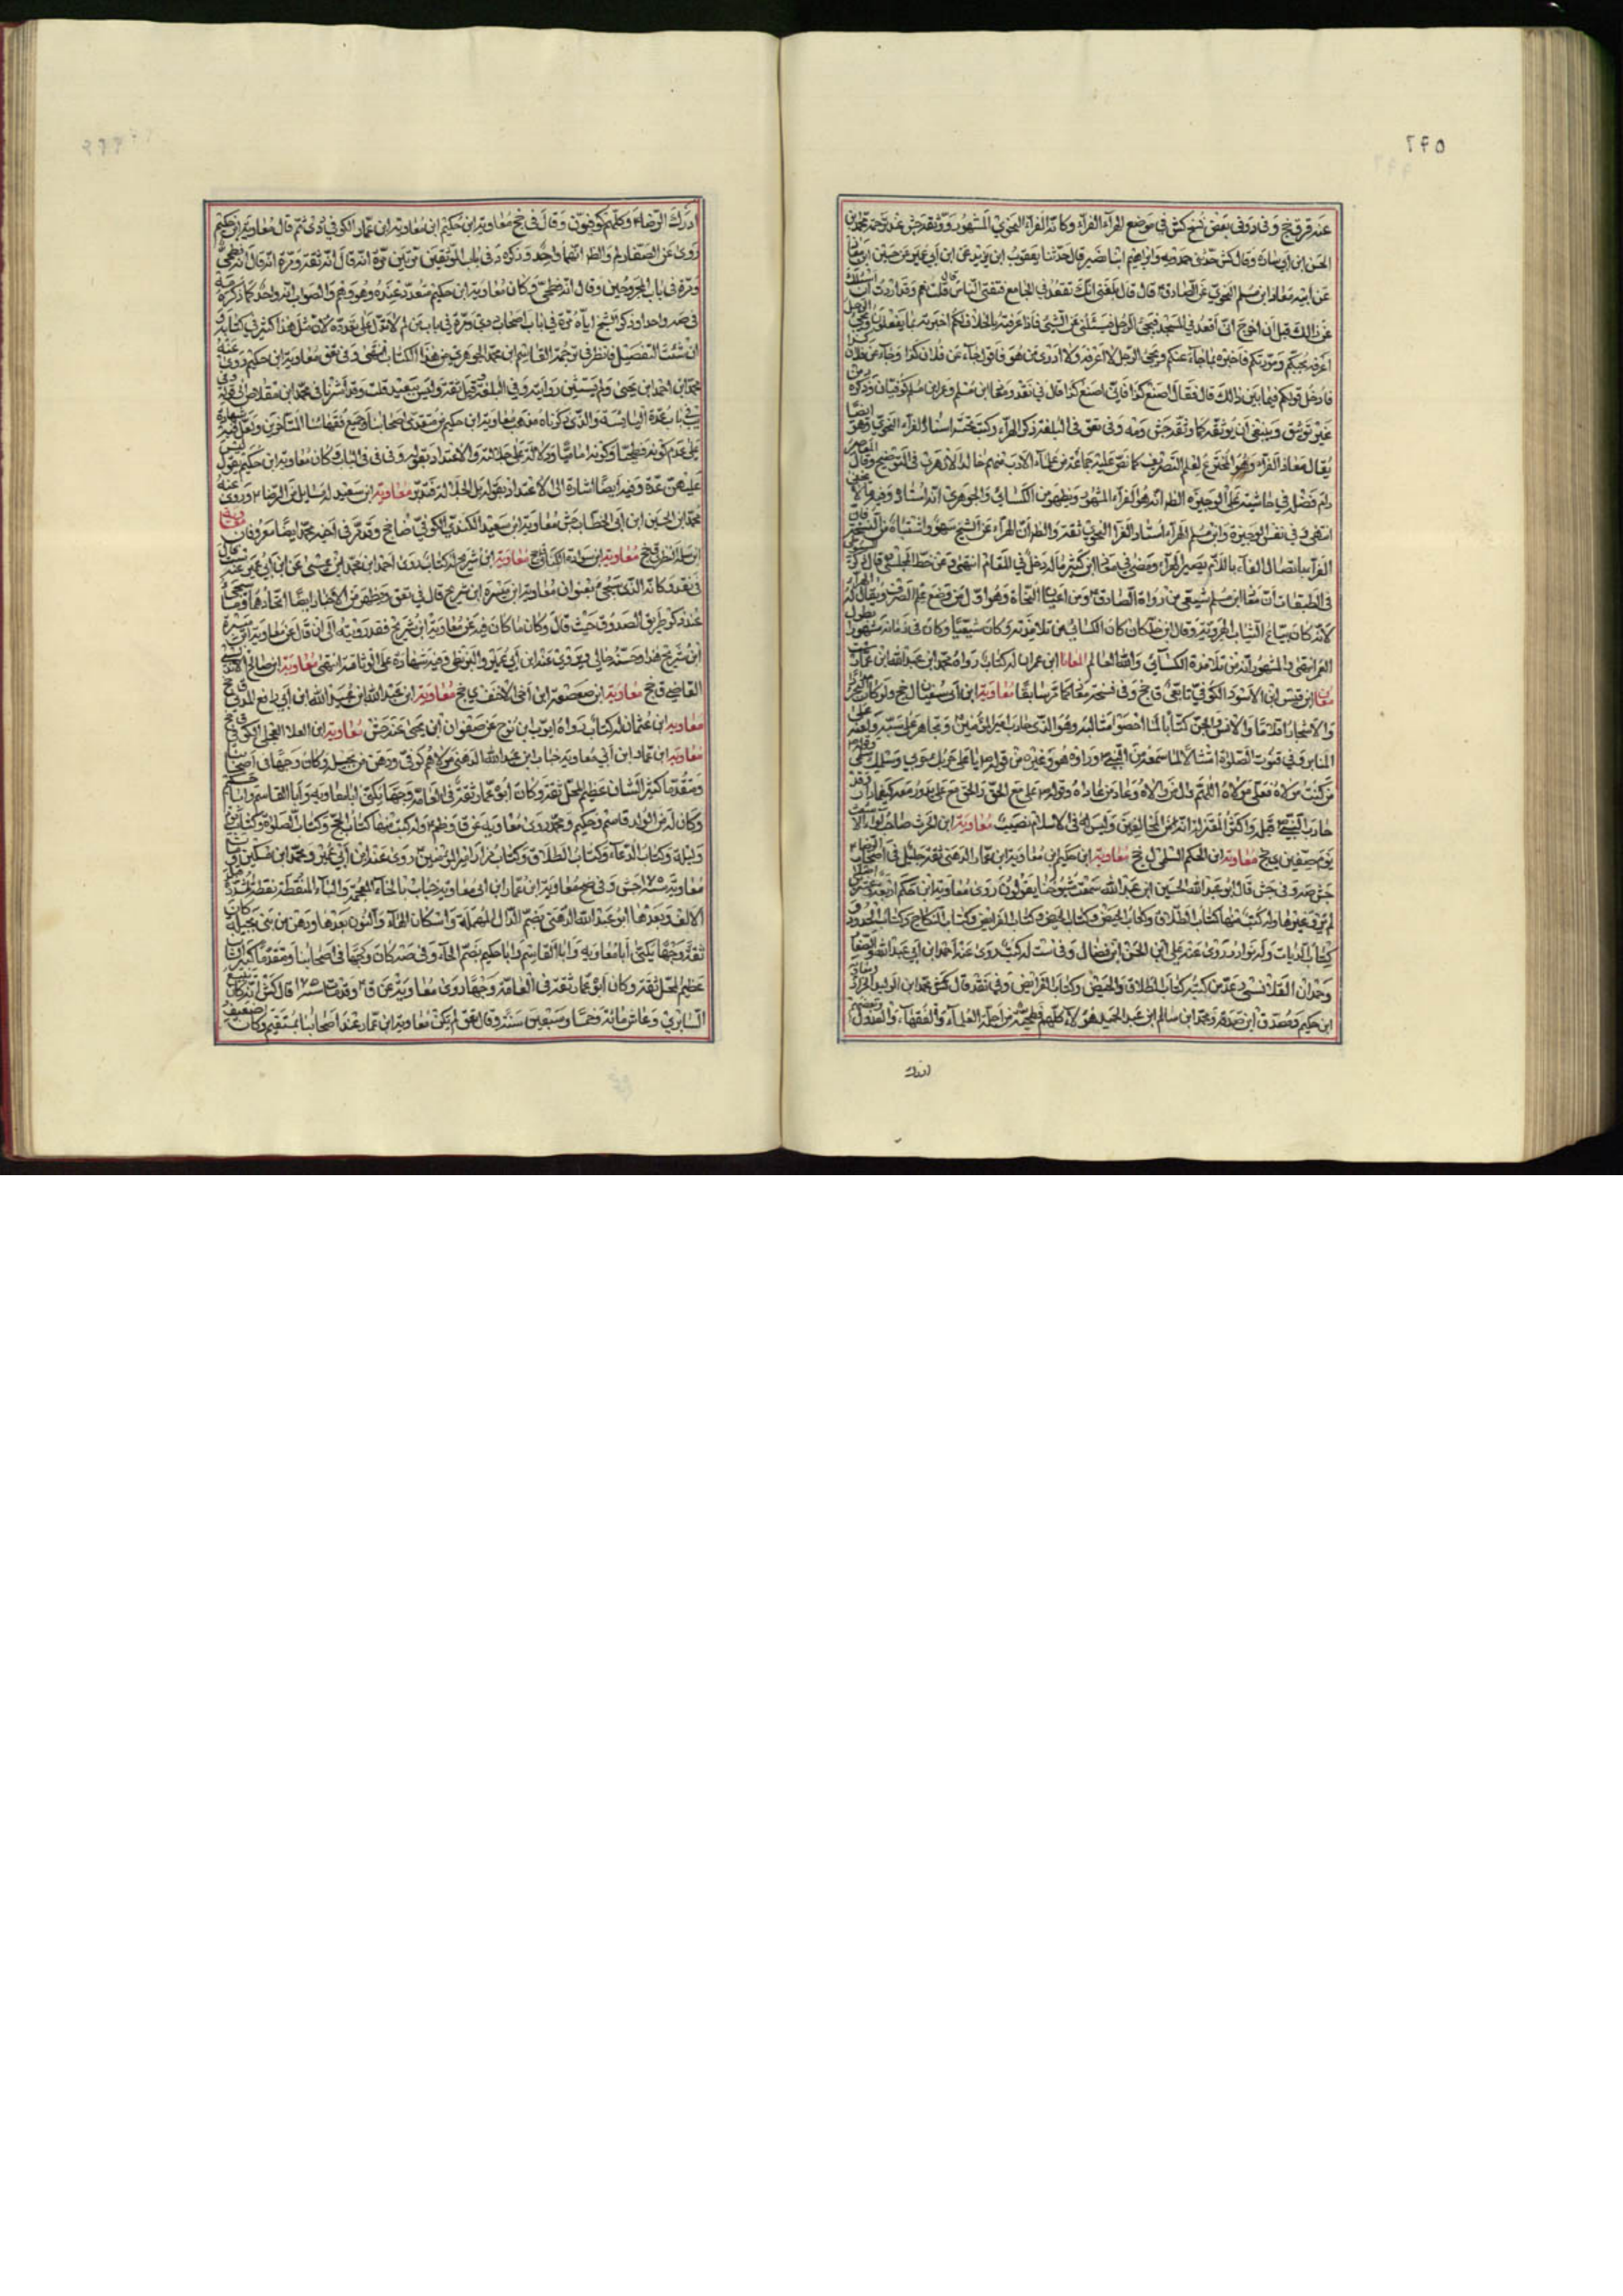 ٢٩٥
عنه قر ق جخ وفى د وفى بعض نسخ كش فى موضع الهراء الفراء وكانه الفراء النحوي المشهور ووثقه جش عند ترجمة محمد بن
الحسن ابن أبي سارة وقال كش حدثنى حمدويه وابراهيم ابنا نصير قالا حدثنا يعقوب ابن يزيد عن ابن أبي عمير عن حسين ابن معاذ
عن أبيه معاذ ابن مسلم النحوي عن الصادق قال قال بلغنى انك تقعد في الجامع فتفتى الناس قال قلت نعم وقد اردت ان اسئلك
عن ذالك قبل ان اخرج انى أقعد في المسجد فيجئ الرجل فيسئلنى عن الشئ فاذا عرفته بالخلاف لكم اخبرته بما يفعلون ويجئ الرجل
اعرفه بحبكم ومودتكم فاخبره بما جاء عنكم ويجئ الرجل لا اعرفه ولا ادرى من هو فاقول جاء عن فلان كذا وجاء عن فلان كذا
فادخل قولكم فيما بين ذالك قال فقال اصنع كذا فانى اصنع كذا قال في نقد ومعاذ ابن مسلم وعمر ابن مسلم كوفيان وذكره د من
غير توثيق وينبغى أن يوثقه كما وثقه جش ومه وفى تعق فى البلغة ذكر الهراء وكتب تحته استاد الفراء النحوي وهو ايضا
يقال معاذ الفراء وهو المخترع لعلم التصريف كما نص عليه جماعة من علماء الادب منهم خالد الازهرى فى التوضيح وقال
دام فضله في حاشيته على الوجيزة الظ انه هو الفراء المشهور ويظهر من الكسائي والجوهرى انه استاد
انتهى وفي نفس الوجيزة وابن مسلم الهراء أستاد الفرا النحوي ثقة والظ ان الهراء عن الشيخ سهو واشتباه من النسخ فان
فى الطبقات أن معاذ ابن مسلم شيعى من رواة الصادق ومن اعيان النحاة وهو اول من وضع علم الصرف ويقال له الهراء
لانه كان يبيع الثياب الهروية وقال ابن خلكان كان الكسائى من تلامذته وكان شيعيا وكان فى زمانه مشهورا بطول
العمر انتهى والمشهور انه من تلامذة الكسائى والله العالم المعافا ابن عمران له كتاب رواه محمد ابن عبدالله ابن عمار ست
معان ابن قيس ابن الاسود الكوفي تابعى ق جخ وفى نسخة معافا كما مر سابقا معاوية ابن أبو سفيان ل جخ ولو كان البحر مدادا
والاشجار اقلاما والانس والجن كتابا لما احصوا مثالبه وهو الذى حارب امير المؤمنين وتجاهر على سبه ولعنه على
المنابر وفى قنوت الصلوة امتثالا لما سمعه من النبي وراوه هو وغيره من قوله يا على حربك حربي وسلمك سلمى وقوله
من كنت مولاه فعلى مولاه اللهم وال من والاه وعاد من عاداه وقوله على مع الحق والحق مع على يدور معه كيفما دار فقد
حارب النبي قبله واكثر
يوم صفين ى جخ معاوية ابن الحكم السلمى ل جخ معاوية ابن حكيم ابن معاوية ابن عمار الدهنى ثقة جليل فى اصحاب الرضا
جش صه وفى جش قال ابو عبد الله الحسين ابن عبد الله سمعت شيوخنا يقولون روى معاوية ابن حكيم اربعة وعشرين اصلا
لم يرو غيرها وله كتب منها كتاب الطلاق وكتاب الحيض وكتاب الفرائض وكتاب النكاح وكتاب الحدود
كتاب الديات وله نوادر روى عنه على ابن الحسن ابن فضال وفى ست له كتب روى عنه احمد ابن أبي عبدالله والصفار
وحمدان القلانسى وعد من كتبه كتاب الطلاق والحيض وكتاب الفرائض وفى نقد قال كش محمد ابن الوليد الخزاز ومعاوية
ابن حكيم ومصدق ابن صدقة ومحمد ابن سالم ابن عبد الحميد هؤلاء كلهم فطحية من اجلة العلماء والفقهاء والعدول وبعضهم
ادرك
ادرك الرضا وكلهم كوفيون وقال فى جخ معاوية ابن حكيم ابن معاوية ابن عمار الكوفي دى ثم قال معاوية ابن حكيم
روى عن الصفار لم والظ انهما واحد وذكره د فى باب الموثقين مرتين مرة انه قال انه ثقة ومرة انه قال انه فطحى
ومرة فى باب المجروحين وقال انه فطحى وكان معاوية ابن حكيم متعدد عنده وهو وهم والصواب انه واحد كما ذكره مه
فى صه واحدا وذكر الشيخ اياه مرة في باب اصحاب دى ومرة فى باب من لم لا تدل على تعدده لان مثل هذا كثير في كتابه
ان شئت التفصيل فانظر فى ترجمة القاسم ابن محمد الجوهري من هذا الكتاب انتهى وفى تعق معاوية ابن حكيم روى عنه
محمد ابن احمد ابن يحيى ولم يستثن روايته وفى البلغة قيل ثقة وليس ببعيد قلت وقد اشرنا فى محمد ابن مقلاص
فى باب عدة اليائسة والذى ذكرناه مذهب معاوية ابن حكيم من متقدمى اصحابنا وجميع فقهائنا المتأخرين ولعل فيه شهادة
على عدم كونه فطحيا وكونه اماميا ودلالة على جلالته والاعتداد بقوله وفى فى الباب كان معاوية ابن حكيم يقول ليس
عليهن عدة وفيه ايضا اشارة الى الاعتداد بقوله بل الجلالة فتدبر معاوية ابن سعيد له مسايل عن الرضا وروى عنه
محمد ابن الحسين ابن ابى الخطاب جش معاوية ابن سعيد الكندى الكوفي ضا جخ وقد مر فى اخيه محمد ايضا معروفان
ابن سلمة النضرى ق جخ معاوية ابن سوادة الكنانى ق جخ معاوية ابن شريح له كتاب روى احمد ابن محمد ابن عيسى عن ابن أبي عمير عنه ست قال
فى نقد وكانه الذى سيجئ بعنوان معاوية ابن ميسرة ابن شريح قال فى تعق ويظهر من الاخبار ايضا اتحادهما
عند ذكر طريق الصدوق حيث قال وكان ما كان فيه عن معاوية ابن شريح فقد رويته الى ان قال عن معاوية ابن ميسرة
ابن شريح هذا وحسنه خالي وروى عنه ابن أبي عمير والبزنطى وفيه شهادة على الوثاقة انتهى معاوية ابن صالح الاندلسى
القاضى ق جخ معاوية ابن صعصعة ابن أخى الاحنف ى جخ معاوية ابن عبد الله ابن عبيد الله ابن أبي رافع المدنى ق جخ
معاوية ابن عثمان له كتاب رواه ايوب ابن نوح عن صفوان ابن يحيى عنه جش معاوية ابن العلا العجلى الكوفى ق جخ
معاوية ابن عمار ابن أبي معاوية خباب ابن عبد الله الدهنى مولاهم كوفى ودهن من بجيلة وكان وجها فى اصحابنا
ومقدما كبير الشان عظيم المحل ثقة وكان ابوه عمار ثقة فى العامة وجها يكنى ابا معاوية وابا القاسم وابا حكيم
وكان له من الولد قاسم وحكيم ومحمد روى معاوية عن ق وظم وله كتب منها كتاب الحج وكتاب الصلوة وكتاب يوم
وليلة وكتاب الدعاء وكتاب الطلاق وكتاب مزار امير المؤمنين روى عنه ابن أبي عمير ومحمد ابن سكين ومات
معاوية سنة ١٧٥ جش وفى صه معاوية ابن عمار ابن ابى معاوية خباب بالخاء المعجمة والباء المنقطة نقطة
الالف وبعدها ابو عبد الله الدهنى بضم الدال المهملة واسكان الهاء والنون بعدها ودهن من بنى بجيلة كان
ثقة وجها يكنى أبا معاوية وابا القاسم وابا حكيم بضم الحاء وفى صه كان وجها فى اصحابنا ومقدما كبير الشان
عظيم المحل ثقة وكان ابوه عمار ثقة فى العامة وجها روى معاوية عن ق وظم ومات سنة ١٧٥ قال كش انه كان يبيع
السابرى وعاش مائة وخمسا وسبعين سنة وقال عق لم يكن معاوية ابن عمار عند اصحابنا بمستقيم وكان ضعيف